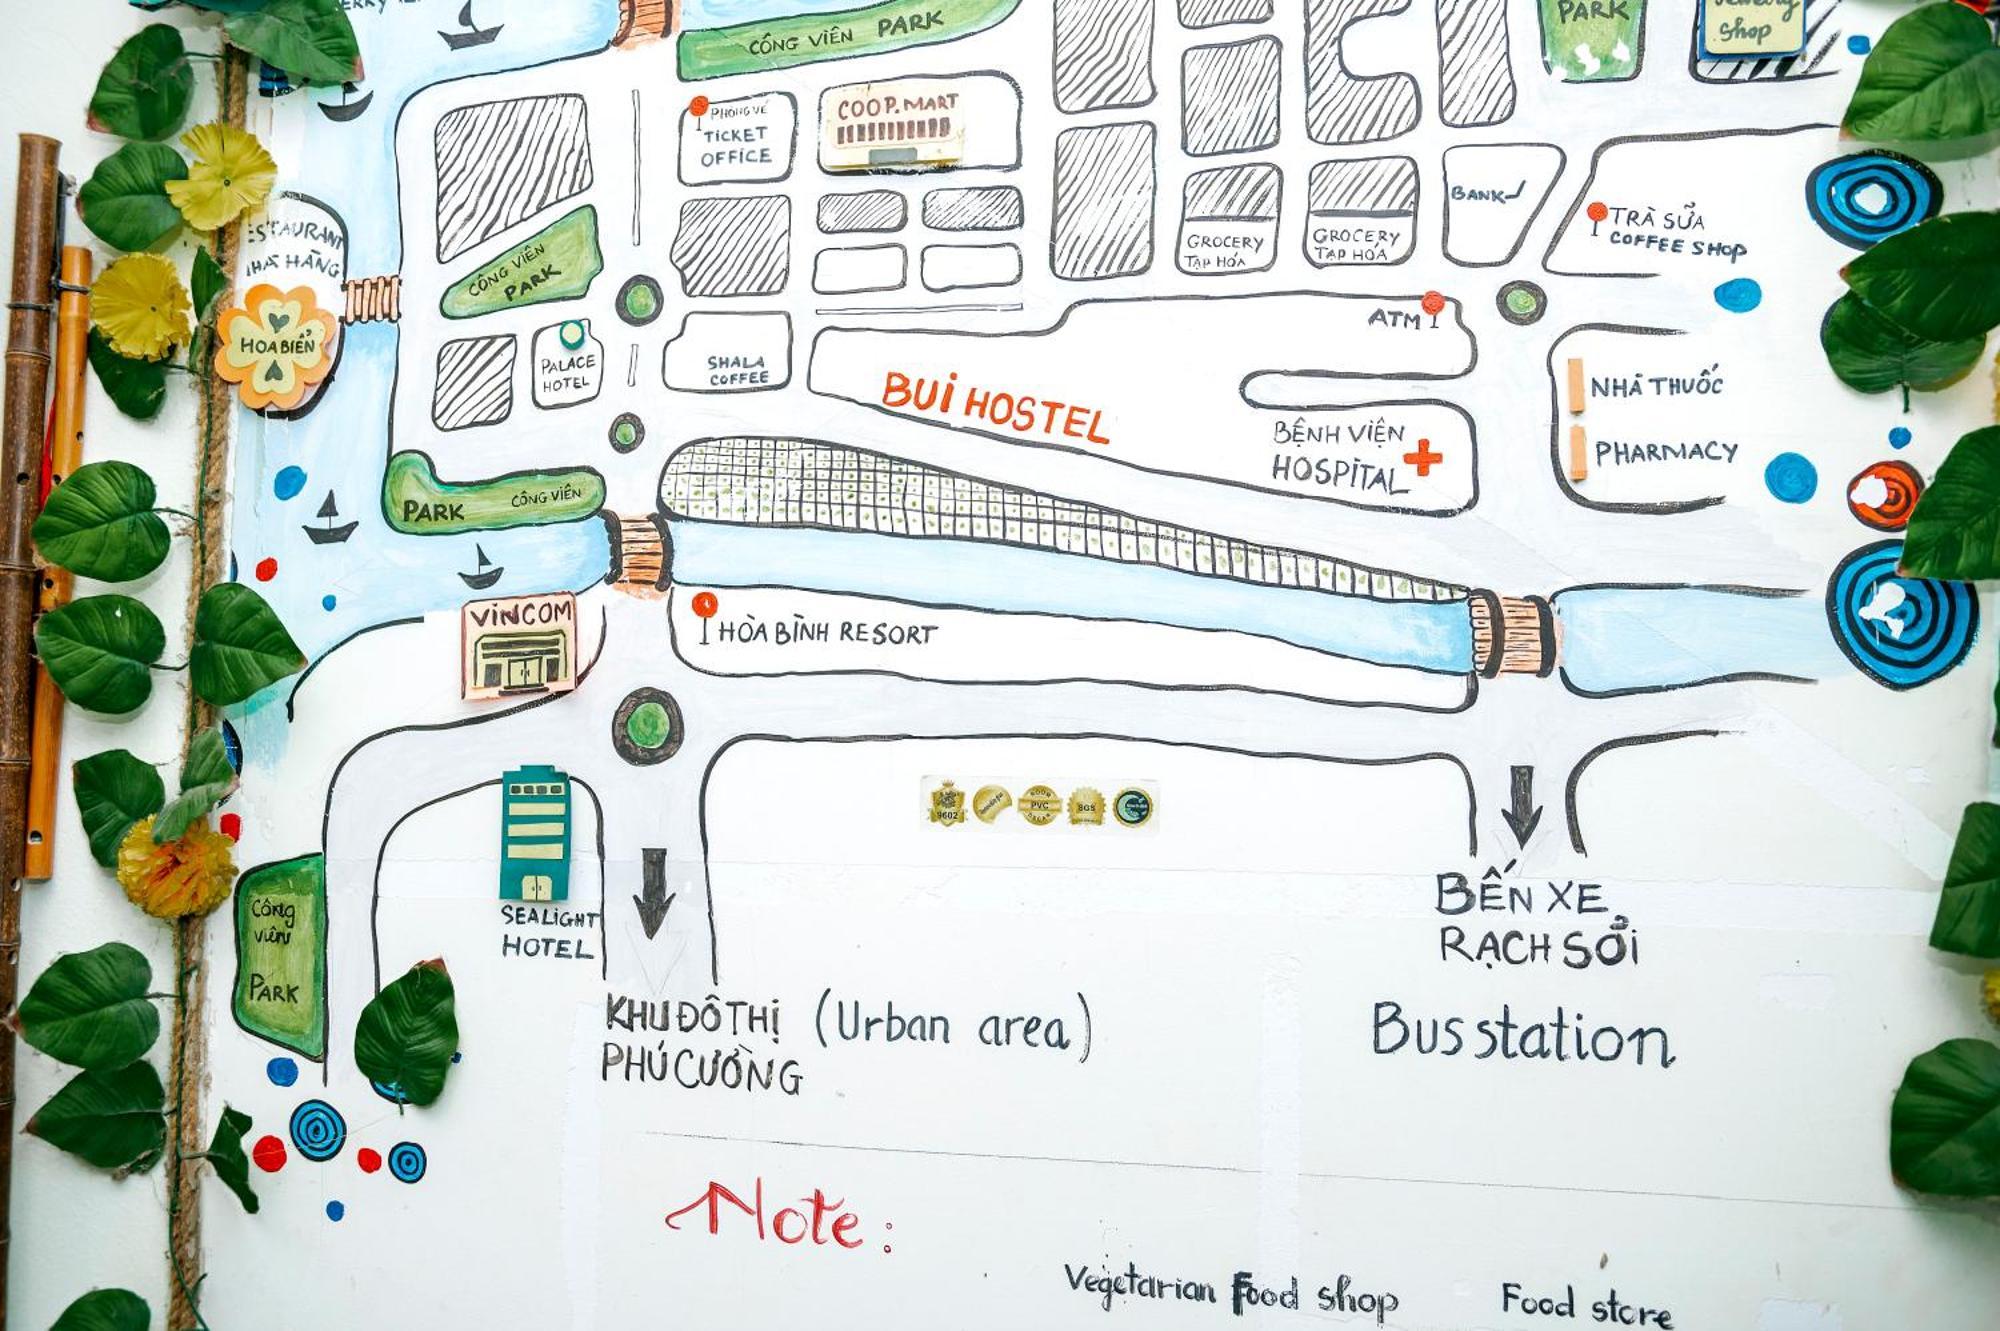 CÔNG VIÊN PARK
PARK
Shop
PHÒNG VÉ
TICKET
OFFICE
COOP.MART
BANK
TRÀ SỮA
COFFEE SHOP
GROCERY
TẠP HÓA
GROCERY
TẠP HÓA
NHÀ HÀNG
CÔNG VIÊN
PARK
HOA BIỂN
ATM
PALACE
HOTEL
SHALA
COFFEE
BUI HOSTEL
BỆNH VIỆN
HOSPITAL
NHÀ THUỐC
PHARMACY
PARK CÔNG VIÊN
VINCOM
HÒA BÌNH RESORT
9602
PVC
SGS
SEALIGHT
HOTEL
BẾN XE
RẠCH SỎI
Bus station
Công
viên
PARK
KHU ĐÔ THỊ
PHÚ CƯỜNG
(Urban area)
Note:
Vegetarian Food shop
Food store